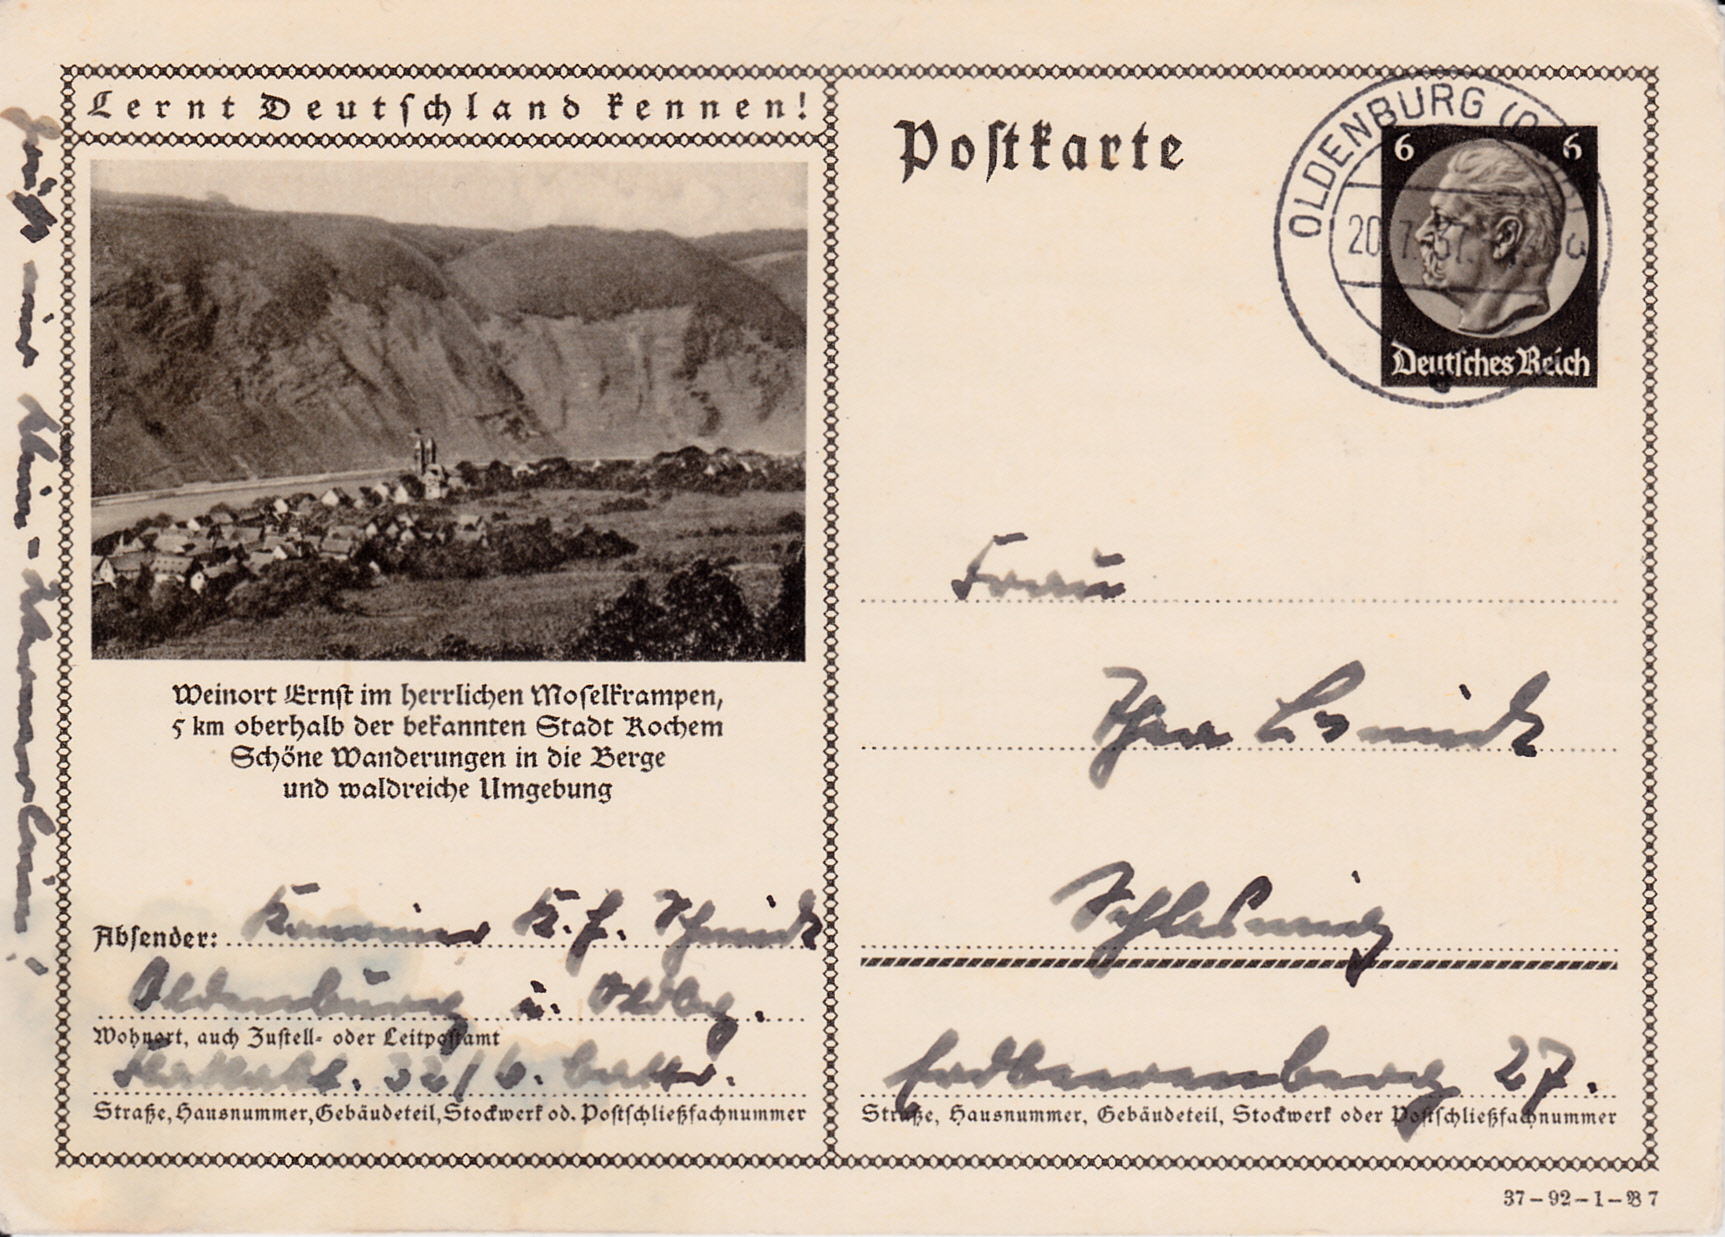 Lernt Deutschland kennen!
Weinort Ernst im herrlichen Moselkrampen,
5 km oberhalb der bekannten Stadt Kochem
Schöne Wanderungen in die Berge
und waldreiche Umgebung
Absender: K. F. Schmidt
Oldenburg i. Oldbg.
Wohnort, auch Zustell- oder Leitpostamt
Straße, Hausnummer, Gebäudeteil, Stockwerk od. Postschließfachnummer
Postkarte
OLDENBURG (O
20.7.37.
6 6
Deutsches Reich
Frau
Schleswig
Erdbeerenberg 27.
Straße, Hausnummer, Gebäudeteil, Stockwerk oder Postschließfachnummer
37-92-1-B 7